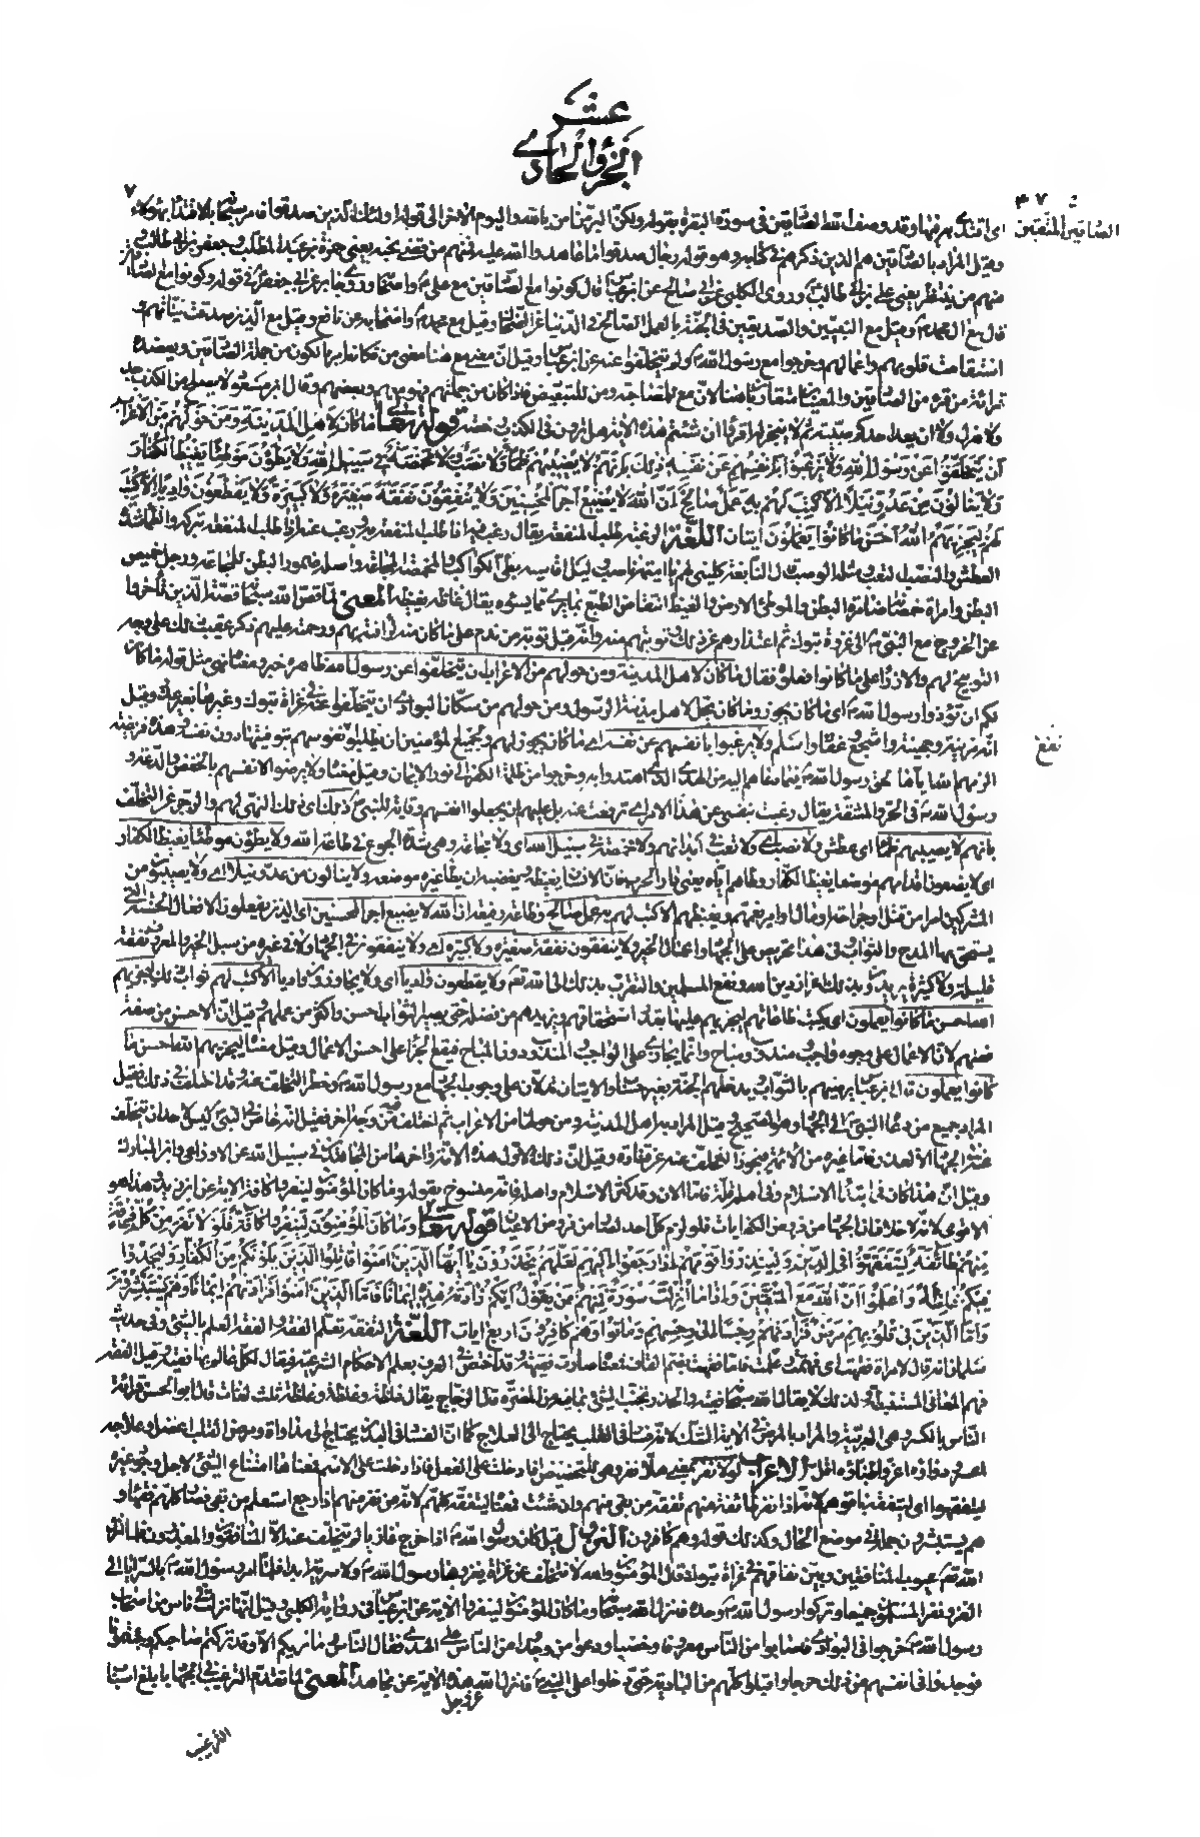 عشر
الجزؤ الحادى
٧
اى اقتدى بهم فيها وقد وصف الله الصادقين فى سورة البقرة بقوله ولكن البر من امن بالله واليوم الاخر الى قوله اولئك الذين صدقوا فامر سبحانه بالاقتداء بهؤلاء
الصادقين المتقين
وقيل المراد بالصادقين هم الذين ذكرهم فى كتابه وهو قوله رجال صدقوا ما عاهدوا الله عليه فمنهم من قضى نحبه يعنى حمزة بن عبد المطلب وجعفر بن ابى طالب و
منهم من ينتظر يعنى على بن ابى طالب وروى الكلبى عن ابى صالح عن ابن عباس قال كونوا مع الصادقين مع على واصحابه وروى جابر عن ابى جعفر فى قوله وكونوا مع الصادقين
قال مع ال محمد وقيل مع النبيين والصديقين فى الجنة بالعمل الصالح فى الدنيا عن الضحاك وقيل مع محمد واصحابه عن نافع وقيل مع الذين صدقت نياتهم و
استقامت قلوبهم واعمالهم وخرجوا مع رسول الله ولم يتخلفوا عنه عن ابن عباس وقيل ان معنى مع هنا معنى من فكانه امر بالكون من جملة الصادقين ويعضده
قراءة من قرء من الصادقين والمعنيان متقاربان هنا لان مع للمصاحبة ومن للتبعيض فاذا كان من جملتهم فهو معهم وبعضهم وقال ابن مسعود لا يصلح من الكذب جد
ولا هزل ولا ان يعد احدكم صبيته ثم لا ينجز له اقرؤا ان شئتم هذه الاية هل ترون فى الكذب رخصة قوله تعالى ما كان لاهل المدينة ومن حولهم من الاعراب
ان يتخلفوا عن رسول الله ولا يرغبوا بانفسهم عن نفسه ذلك بانهم لا يصيبهم ظمأ ولا نصب ولا مخمصة فى سبيل الله ولا يطؤن موطئا يغيظ الكفار
ولا ينالون من عدو نيلا الا كتب لهم به عمل صالح ان الله لا يضيع اجر المحسنين ولا ينفقون نفقة صغيرة ولا كبيرة ولا يقطعون واديا الا كتب
لهم ليجزيهم الله احسن ما كانوا يعملون ايتان اللغة الرغبة طلب المنفعة يقال رغب فيه اذا طلب المنفعة به ورغب عنه اذا طلب المنفعة بتركه والظمأ شدة
العطش والنصب التعب ومثله الوصب قال النابغة كلينى لهم يا اميمة ناصب وليل اقاسيه بطىء الكواكب والمخمصة المجاعة واصله ضمور البطن للمجاعة ورجل خميص
البطن وامراة خمصانة ضامرة البطن والموطئ الارض والغيظ انتقاض الطبع بما يرى مما يسوءه يقال غاظه يغيظه المعنى لما قص الله سبحانه قصة الذين تاخروا
عن الخروج مع النبى الى غزوة تبوك ثم اعتذارهم عن ذلك وتوبتهم منه وانه قبل توبة من ندم على ما كان منه لرأفته بهم ورحمته عليهم ذكر عقيب ذلك على وجه
التوبيخ لهم والازراء على ما كانوا فعلوه فقال ما كان لاهل المدينة ومن حولهم من الاعراب ان يتخلفوا عن رسول الله ظاهره خبر ومعناه نهى مثل قوله ما كان
لكم ان تؤذوا رسول الله اى ما كان يجوز وما كان يحل لاهل مدينة الرسول ومن حولهم من سكان البوادى ان يتخلفوا عنه فى غزاة تبوك وغيرها بغير عذر وقيل
انه مزينة وجهينة واشجع وغفار واسلم ولا يرغبوا بانفسهم عن نفسه اى ما كان يجوز لهم ولجميع المؤمنين ان يطلبوا نفع نفوسهم بتوقيتها دون نفسه وهذه فريضة
نفع
الزمهم الله اياها لحق رسول الله فيما دعاهم اليه من الهدى الذى اهتدوا به وخرجوا من ظلمة الكفر الى نور الايمان وقيل معناه ولا يرضوا لانفسهم بالخفض والدعة و
رسول الله فى الحر والمشقة يقال رغبت بنفسى عن هذا الامر اى ترفعت عنه بل عليهم ان يجعلوا انفسهم وقاية للنبى ذلك اى ذلك النهى لهم والزجر عن التخلف
بانهم لا يصيبهم ظمأ اى عطش ولا نصب اى ولا تعب فى ابدانهم ولا مخمصة فى سبيل الله اى ولا مجاعة وهى شدة الجوع فى طاعة الله ولا يطؤن موطئا يغيظ الكفار
اى لا يضعون اقدامهم موضعا يغيظ الكفار وطأهم اياه يعنى دار الحرب فان الانسان يغيظه ويغضبه ان يطأ غيره موضعه ولا ينالون من عدو نيلا اى ولا يصيبون من
المشركين امرا من قتل او جراحة او مال او امر يغمهم ويغيظهم الا كتب لهم به عمل صالح وطاعة رفيعة ان الله لا يضيع اجر المحسنين اى الذين يفعلون الافعال الحسنة التى
يستحق بها المدح والثواب وفى هذا تحريص على الجهاد واعمال الخير ولا ينفقون نفقة صغيرة ولا كبيرة اى ولا ينفقون فى الجهاد ولا فى غيره من سبل الخير والمعروف نفقة
قليلة ولا كثيرة يريدون بذلك اعزاز دين الله ونفع المسلمين والتقرب بذلك الى الله تعالى ولا يقطعون واديا اى ولا يجاوزون واديا الا كتب لهم ثواب ذلك ليجزيهم
الله احسن ما كانوا يعملون اى يكتب طاعاتهم ليجزيهم عليها بقدر استحقاقهم ويزيدهم من فضله حتى يصير الثواب احسن واكثر من عملهم وقيل ان الاحسن من صفة
فعلهم لان الاعمال على وجوه واجب ومندوب ومباح وانما يجازى على الواجب والمندوب دون المباح فيقع الجزاء على احسن الاعمال وقيل معناه ليجزيهم الله احسن ما
كانوا يعملون قال ابن عباس يرضيهم بالثواب ويدخلهم الجنة بغير حساب والايتان تدلان على وجوب الجهاد مع رسول الله وحظر التخلف عنه وقد اختلف فى ذلك فقيل
المراد جميع من دعاه النبى الى الجهاد وهو الصحيح وقيل المراد به اهل المدينة ومن حولها من الاعراب ثم اختلف فيه من وجه اخر فقيل انه خاص فى النبى ليس لاحد ان يتخلف
عنه فى الجهاد الا لعذر فاما غيره من الائمة فيجوز التخلف عنه عن قتادة وقيل ان ذلك لاول هذه الامة واخرها من المجاهدين فى سبيل الله عن الاوزاعى وابن المبارك
وقيل ان هذا كان فى ابتداء الاسلام وفى اهله قلة فاما الان وقد كثر الاسلام واهله فانه منسوخ بقوله وما كان المؤمنون لينفروا كافة الاية عن ابن زيد وهذا هو
الاقوى لانه لا خلاف ان الجهاد من فروض الكفايات فلو لزم كل احد لصار من فروض الاعيان قوله تعالى وما كان المؤمنون لينفروا كافة فلولا نفر من كل فرقة
منهم طائفة ليتفقهوا فى الدين ولينذروا قومهم اذا رجعوا اليهم لعلهم يحذرون يا ايها الذين امنوا قاتلوا الذين يلونكم من الكفار وليجدوا
فيكم غلظة واعلموا ان الله مع المتقين واذا ما انزلت سورة فمنهم من يقول ايكم زادته هذه ايمانا فاما الذين امنوا فزادتهم ايمانا وهم يستبشرون
واما الذين فى قلوبهم مرض فزادتهم رجسا الى رجسهم وماتوا وهم كافرون اربع ايات اللغة التفقه تعلم الفقه والفقه العلم بالشىء وفى حديث
سلمان انه قال لامراة فقهت اى فهمت وعلمت فاما فقهت بضم القاف فمعناه صارت فقيهة وقد اختص فى العرف بعلم الاحكام الشرعية فيقال لكل عالم بها فقيه وقيل الفقه
فهم المعانى المستنبطة ولذلك لا يقال الله سبحانه فقيه والحذر تجنب الشىء لما فيه من المضرة قال الزجاج يقال غلظة وغلظة وغلظة ثلث لغات قال ابو الحسن قراءة
الناس بالكسر وهى العربية والمراد بالمرض فى الاية الشك لانه فساد فى القلب يحتاج الى العلاج كما ان الفساد فى البدن يحتاج الى مداواة ومرض القلب اعضل وعلاجه
اعسر ودواؤه اعز واطباؤه اقل الاعراب لولا نفر بمعنى هلا نفر وهى للتحضيض اذا دخلت على الفعل فاذا دخلت على الاسم فمعناها امتناع الشىء لاجل وجود غيره
ليتفقهوا اى ليتفقه باقوهم لانه اذا نفر طائفة منهم تفقه من بقى منهم وان شئت فمعناه ليتفقه كلهم لانه من نفر منهم اذا رجع استعلم من بقى فصار كلهم فقهاء و
هم يستبشرون جملة فى موضع الحال وكذلك قوله وهم كافرون النزول قيل كان رسول الله اذا خرج غازيا لم يتخلف عنه الا المنافقون والمعذرون فلما انزل
الله تعالى عيوب المنافقين وبين نفاقهم فى غزاة تبوك قال المؤمنون والله لا نتخلف عن غزاة يغزوها رسول الله ولا سرية ابدا فلما امر رسول الله بالسرايا الى
الغزو نفر المسلمون جميعا وتركوا رسول الله وحده فانزل الله سبحانه وما كان المؤمنون لينفروا الاية عن ابن عباس فى رواية الكلبى وقيل انها نزلت فى ناس من اصحاب
رسول الله خرجوا فى البوادى فاصابوا من الناس معروفا وخصبا ودعوا من وجدوا من الناس على الهدى فقال الناس وما نريكم الا وقد تركتم صاحبكم وجئتمونا
فوجدوا فى انفسهم من ذلك حرجا واقبلوا كلهم من البادية حتى دخلوا على النبى فانزل الله هذه الاية عن مجاهد المعنى لما تقدم الترغيب فى الجهاد بابلغ اسباب
عز وجل
الترغيب